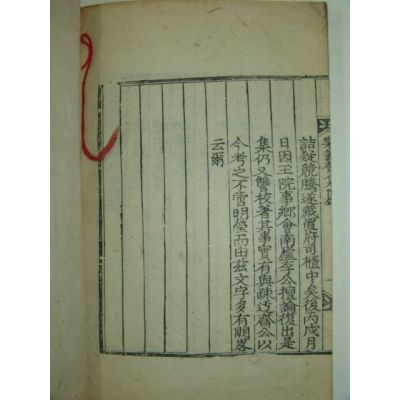 詰疑競騰遂藏置府司櫃中矣後丙戌月
日因玉院事鄉會南廬李公壇論復出是
集仍又讐校著其事實有與疎迃齋公以
今考之不啻明瑩而由玆文字多有闕畧
云爾